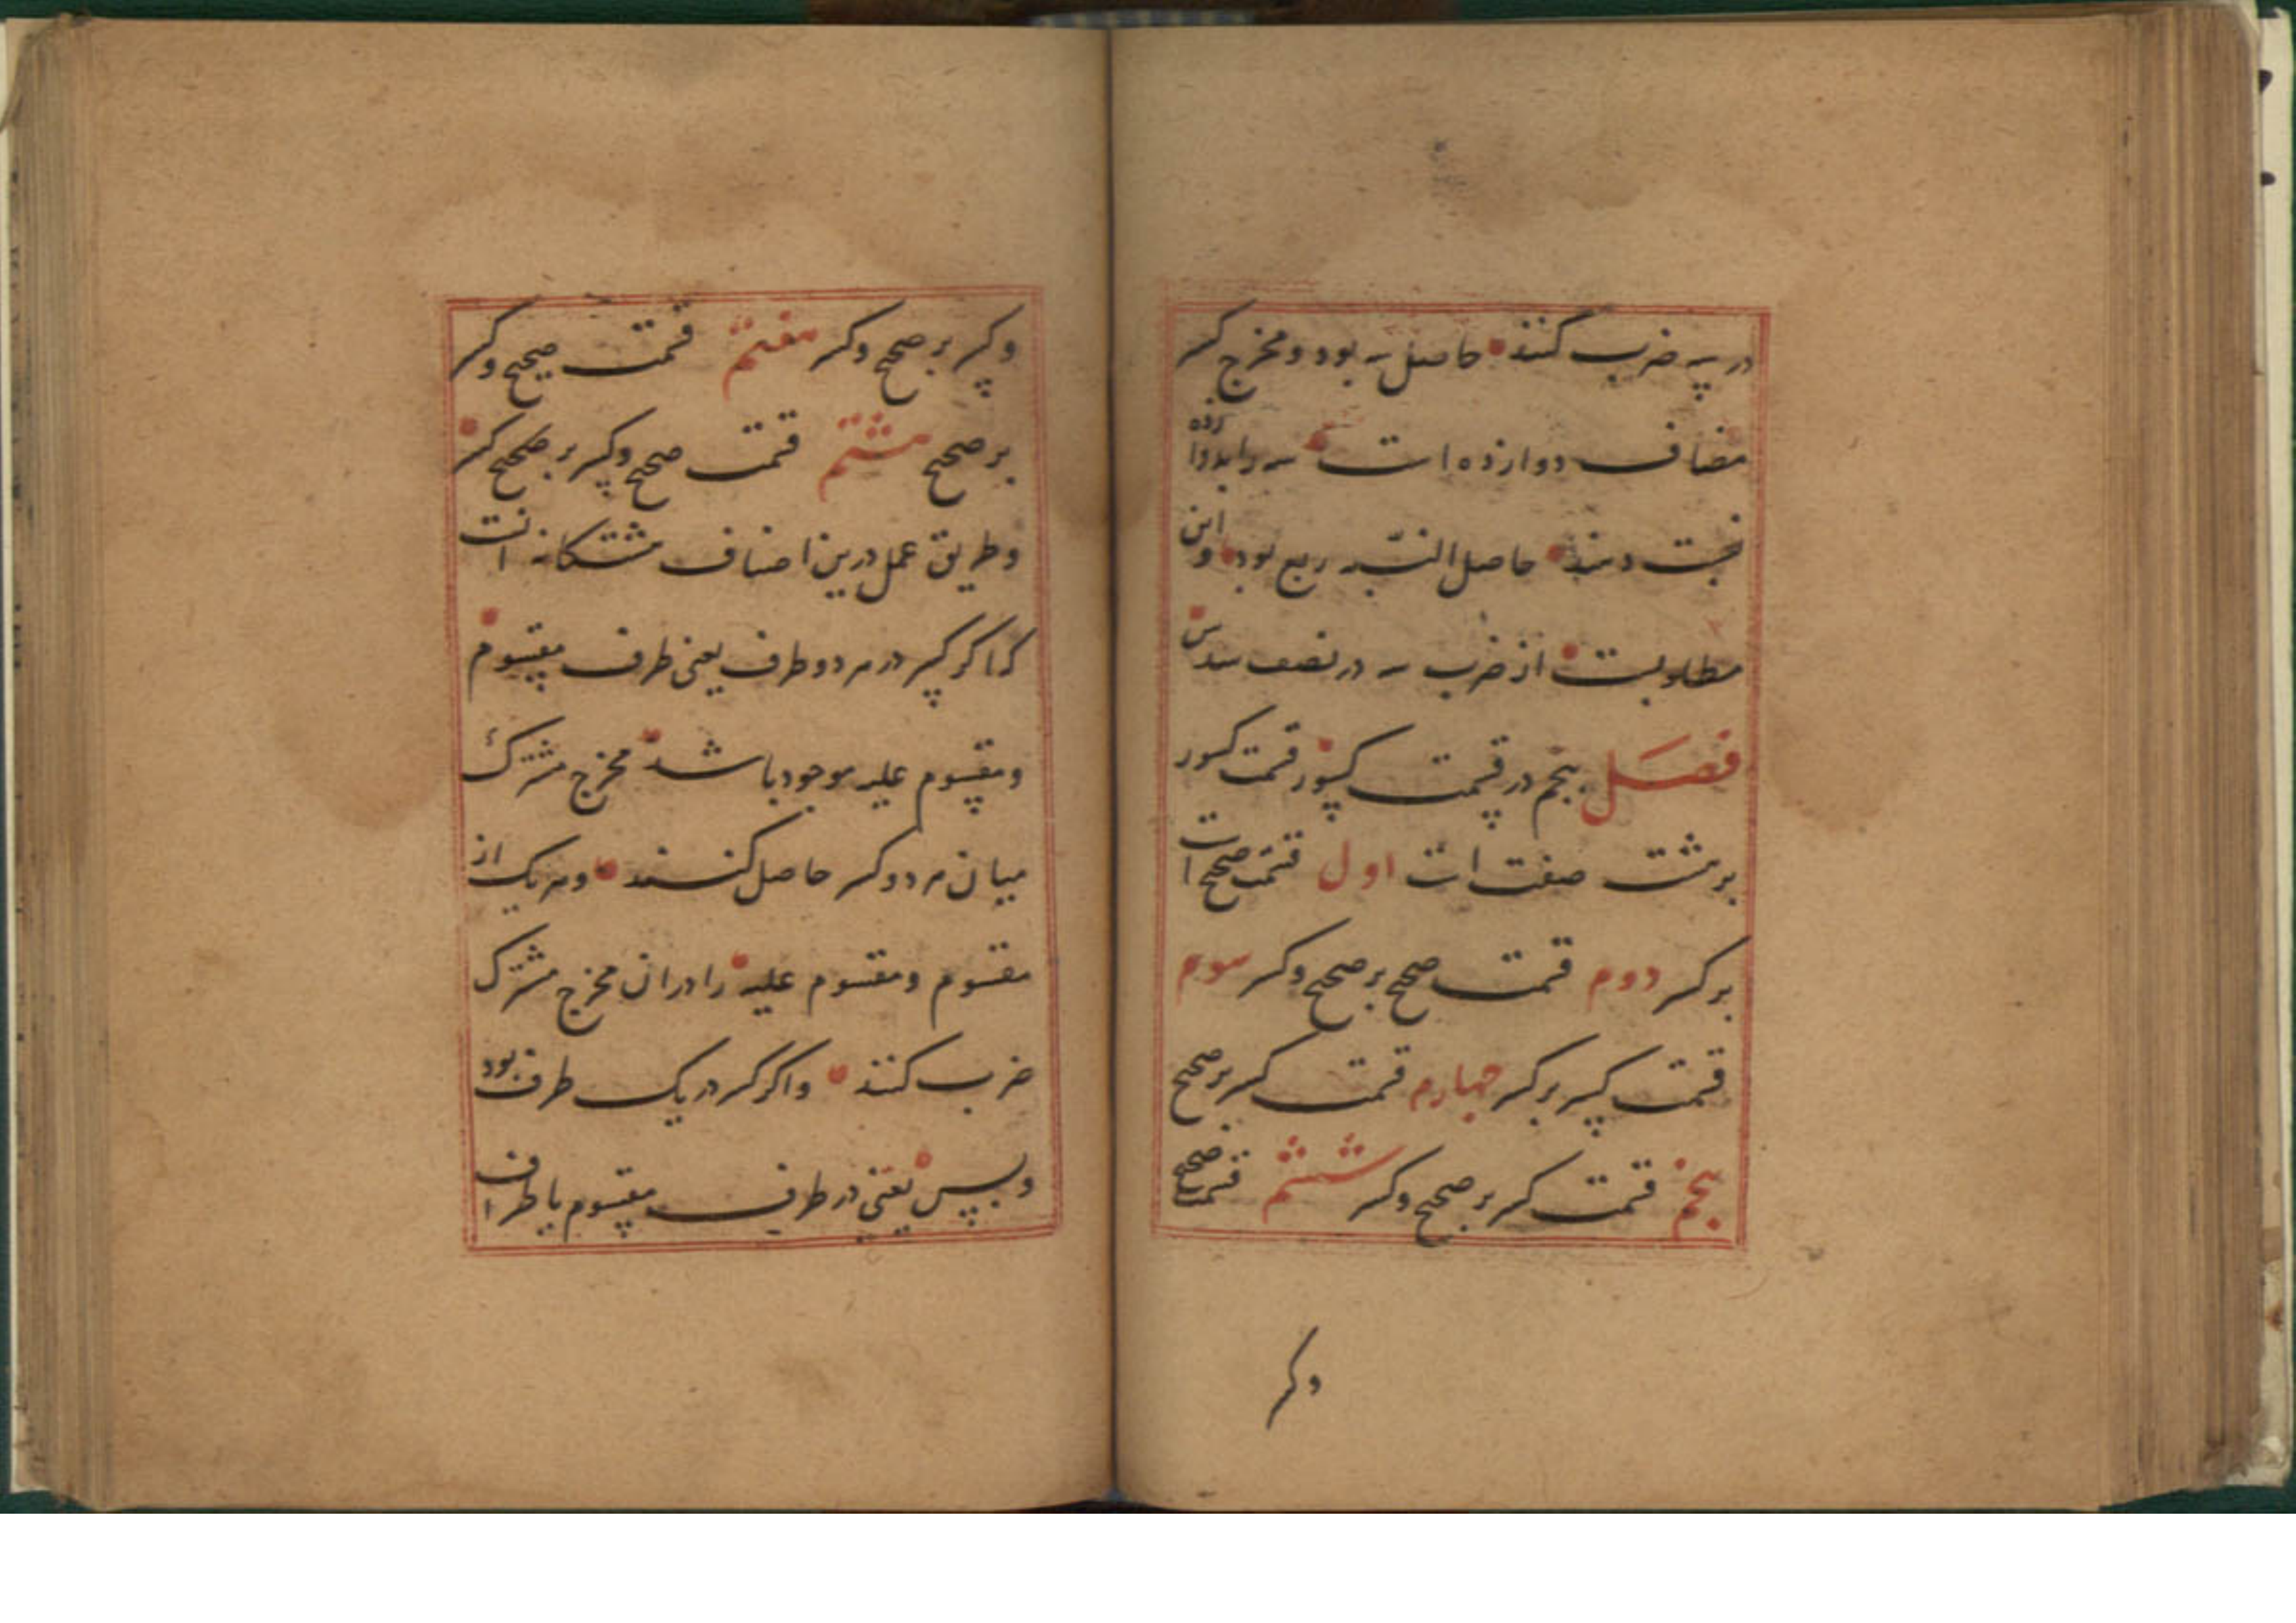 در سه ضرب کنند حاصل سه بود و مخرج کسر
مضاف دوازده است سه را بدوازده
نسبت دهند حاصل النسبه ربع بود و این
مطلوبست از ضرب سه در نصف سدس
فصل پنجم در قسمت کسور قسمت کسور
بر هشت صنفست اول قسمت صحیح است
بر کسر دوم قسمت صحیح بر صحیح و کسر سوم
قسمت کسر بر کسر چهارم قسمت کسر بر صحیح
پنجم قسمت کسر بر صحیح و کسر ششم قسمت صحیح
وکسر
وکسر بر صحیح وکسر هفتم قسمت صحیح وکسر
بر صحیح هشتم قسمت صحیح وکسر بر صحیح کسر
و طریق عمل درین اصناف هشتکانه انست
که اکر کسر در هر دو طرف یعنی طرف مقسوم
و مقسوم علیه موجود باشد مخرج مشترک
میان هر دو کسر حاصل کنند و هر یک از
مقسوم و مقسوم علیه را در ان مخرج مشترک
ضرب کنند و اکر کسر در یک طرف بود
و بس یعنی در طرف مقسوم یا طرف